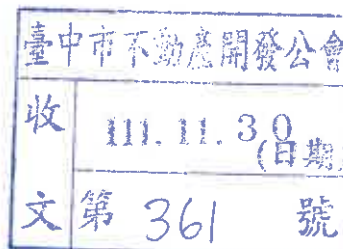 臺中市不動產開發公會
收文
111.11.30
(日期
第 361 號